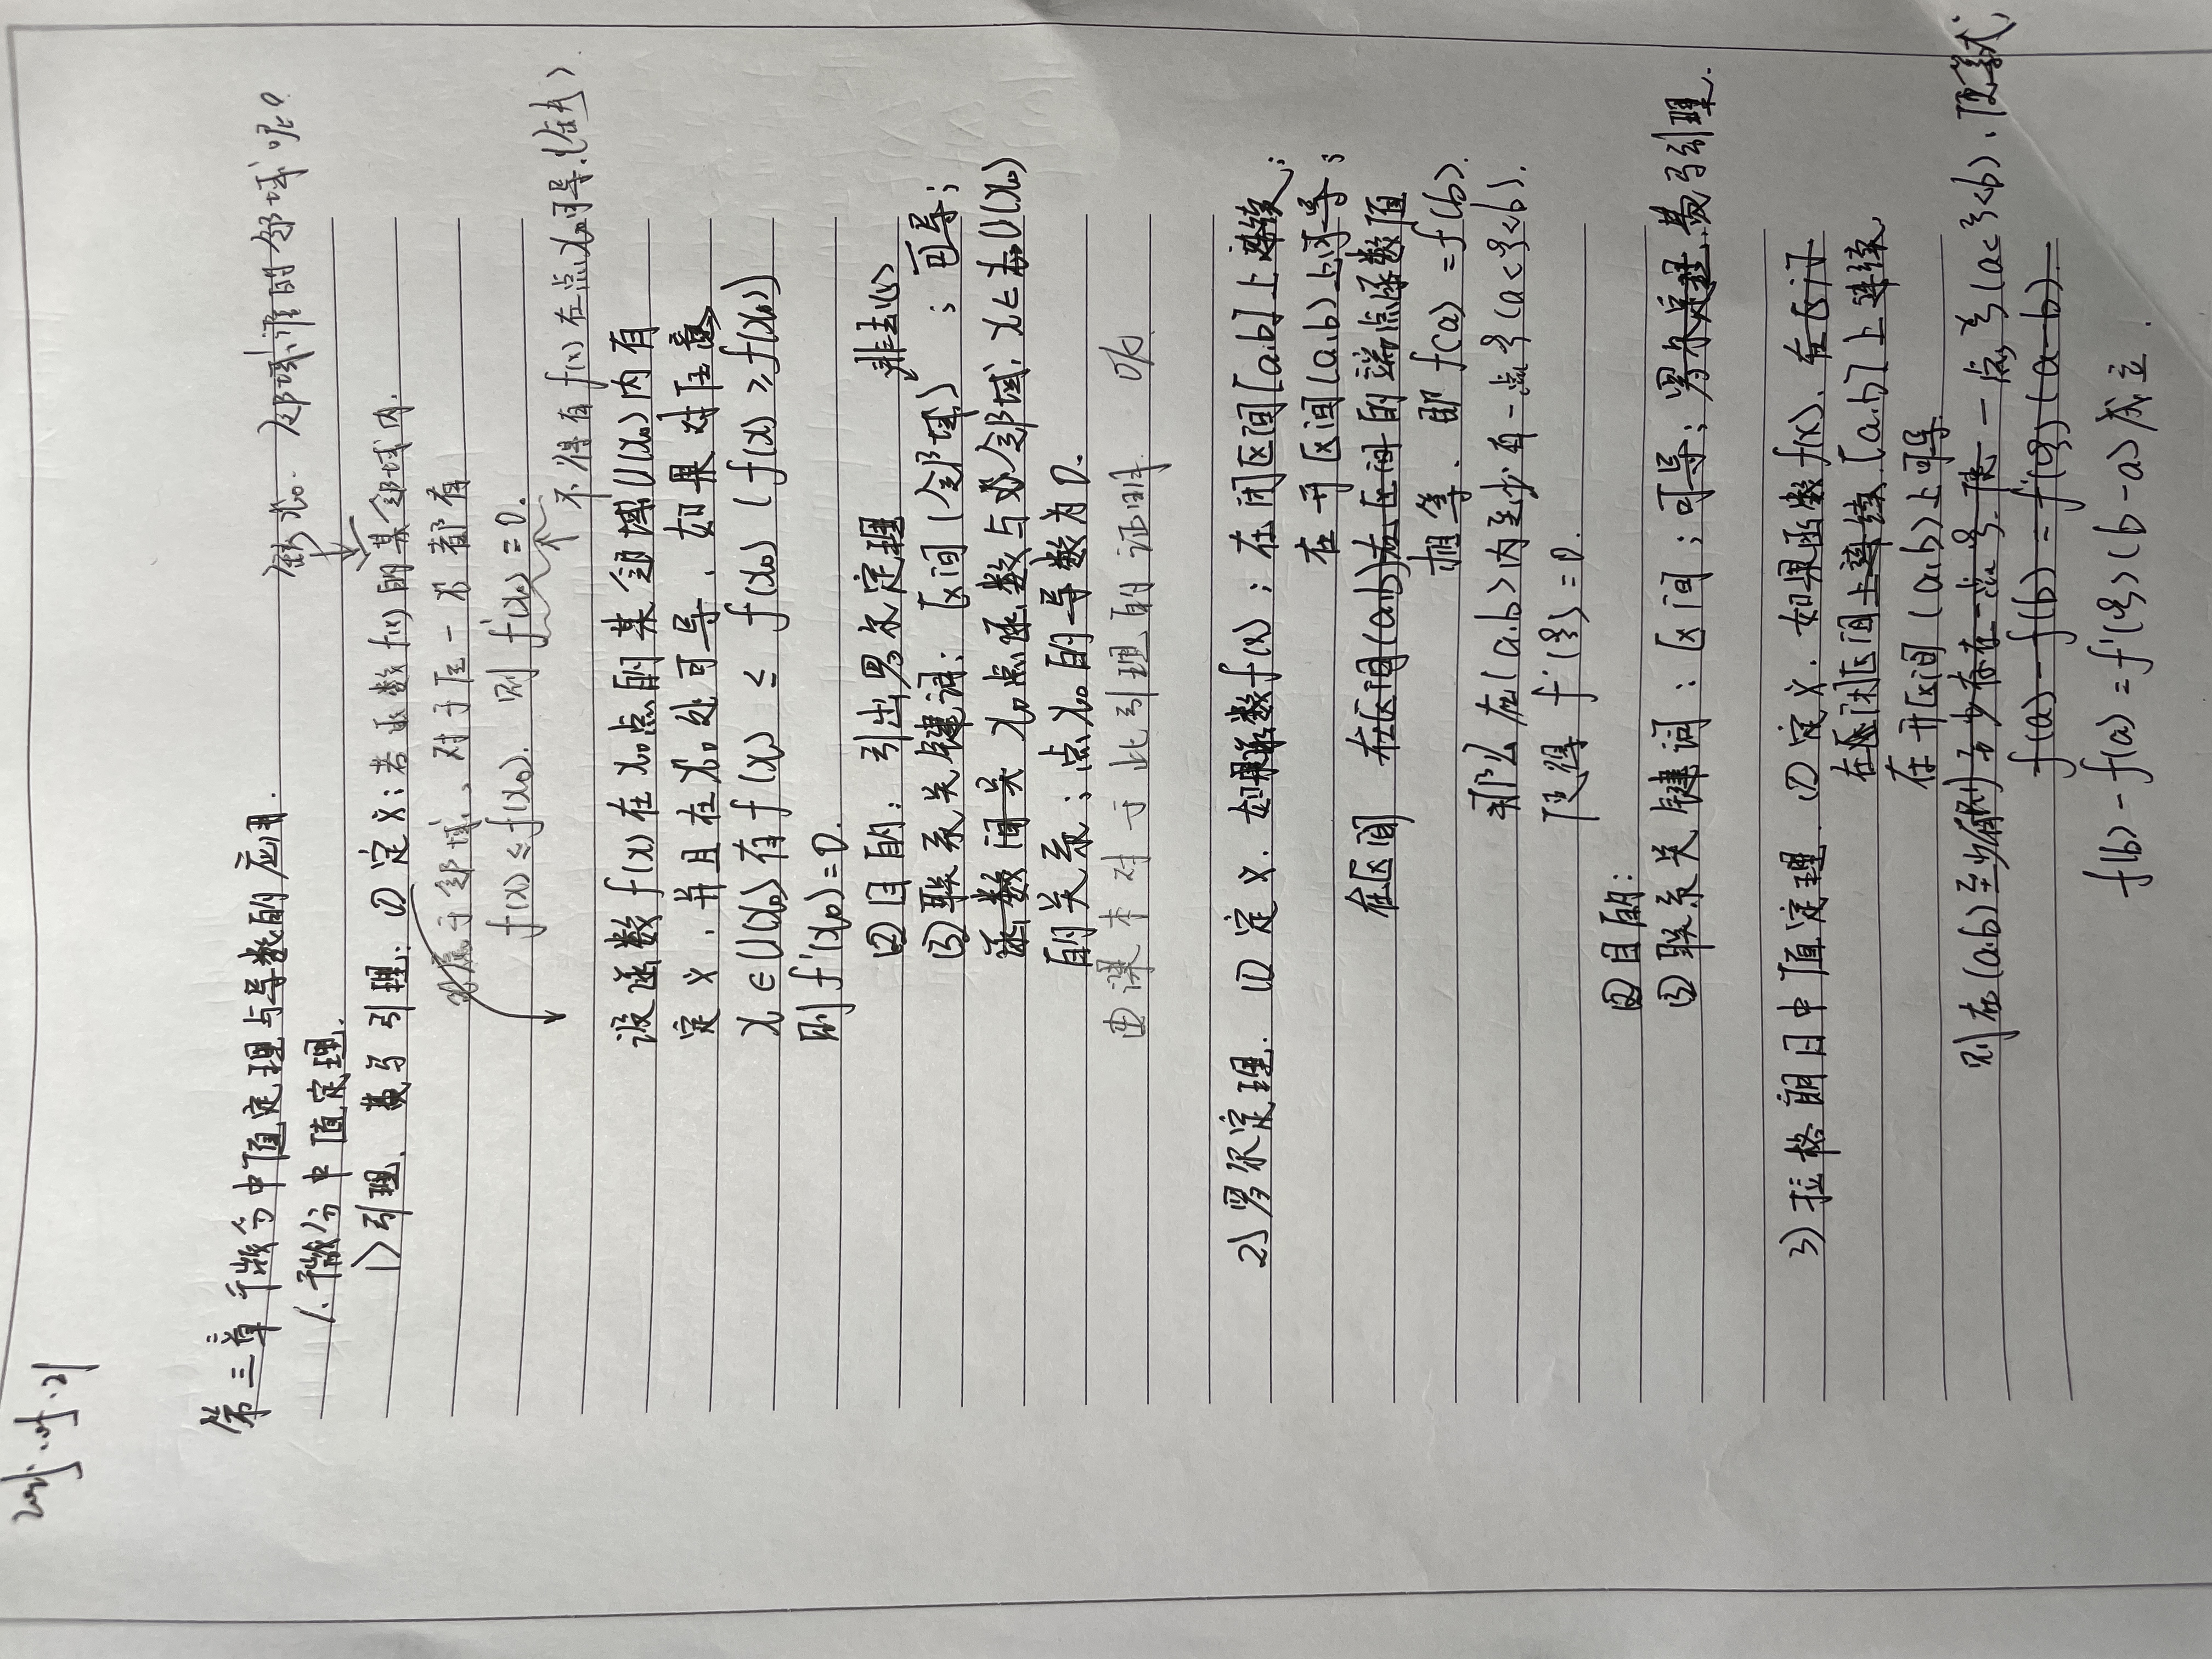 第三章 微分中值定理与导数的应用.
缺x₀. 邻域,谁的邻域呢?
1. 微分中值定理.
1) 引理. 费马引理: ① 定义: 若函数f(x)的某邻域内.
x属于邻域, 对于任一x都有
f(x)≤f(x₀). 则 f'(x₀)=0.
f(x)在点x₀可导.(缺)
设函数f(x)在x₀点的某邻域U(x₀)内有
定义, 并且在x₀处可导, 如果对任意
x∈U(x₀)有f(x) ≤ f(x₀) (f(x)≥f(x₀))
则f'(x₀)=0.
②目的: 引出罗尔定理
非去心
③联系关键词: 区间(邻域) ; 可导;
函数间关 x₀点函数与邻域, x∈U(x₀)
的关系; 点x₀的导数为0.
④课本对于此引理的证明. OK
2) 罗尔定理. ① 定义. 如果函数f(x); 在闭区间[a,b]上连续;
在开区间(a,b)上可导;
在区间 在区间(a,b)在区间的端点函数值
相等. 即f(a)=f(b).
那么在(a,b)内至少有一点ξ(a<ξ<b).
使得 f'(ξ)=0.
②目的:
③联系关键词: 区间; 可导; 罗尔定理. 费马引理.
3) 拉格朗日中值定理. ① 定义. 如果函数f(x). 在区间
在闭区间上连续[a,b]上连续,
在开区间(a,b)上可导.
则在(a,b)至少有则至少存在一点ξ.使 一点ξ(a<ξ<b), 使等式,
f(a)-f(b)=f'(ξ)(a-b).
f(b)-f(a)=f'(ξ)(b-a)成立.